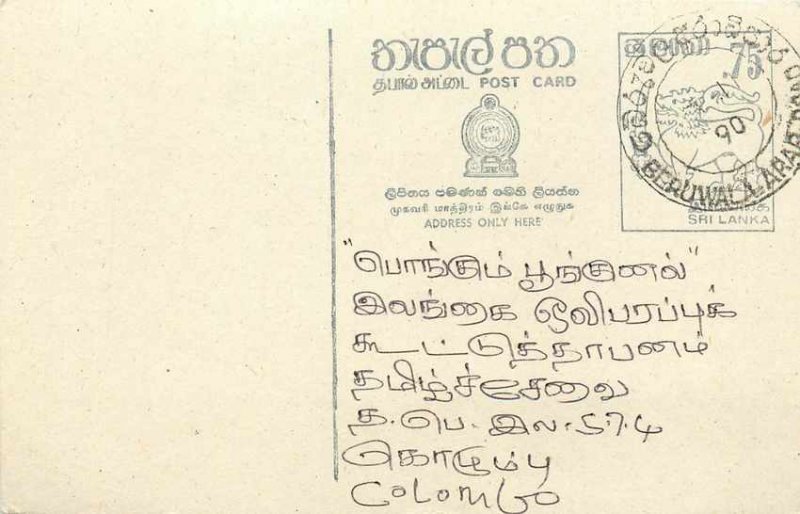 තැපැල් පත
தபால் அட்டை POST CARD
ලිපිනය පමණක් මෙහි ලියන්න
முகவரி மாத்திரம் இங்கே எழுதுக
ADDRESS ONLY HERE
ශ්‍රී ලංකා
.75
90
BERUWALA ARAB
SRI LANKA
"பொங்கும் பூங்குனல்"
இலங்கை ஒலிபரப்புக்
கூட்டுத்தாபனம்
தமிழ்ச்சேவை
த. பெ. இல. 574
கொழும்பு
Colombo